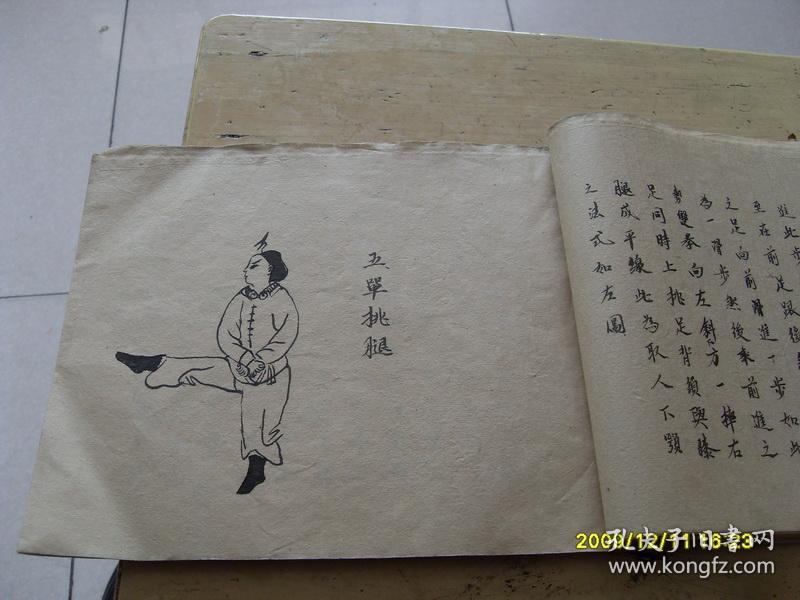 進此步
至在前足跟後
之足向前滑進一步如此
為一滑步然後乘前進之
勢雙拳向左斜方一摔右
足同時上挑足背須與膝
腿成平線此為取人下顎
之法式如左圖
五單挑腿
2009/12/11 16:23
孔夫子旧书网
www.kongfz.com